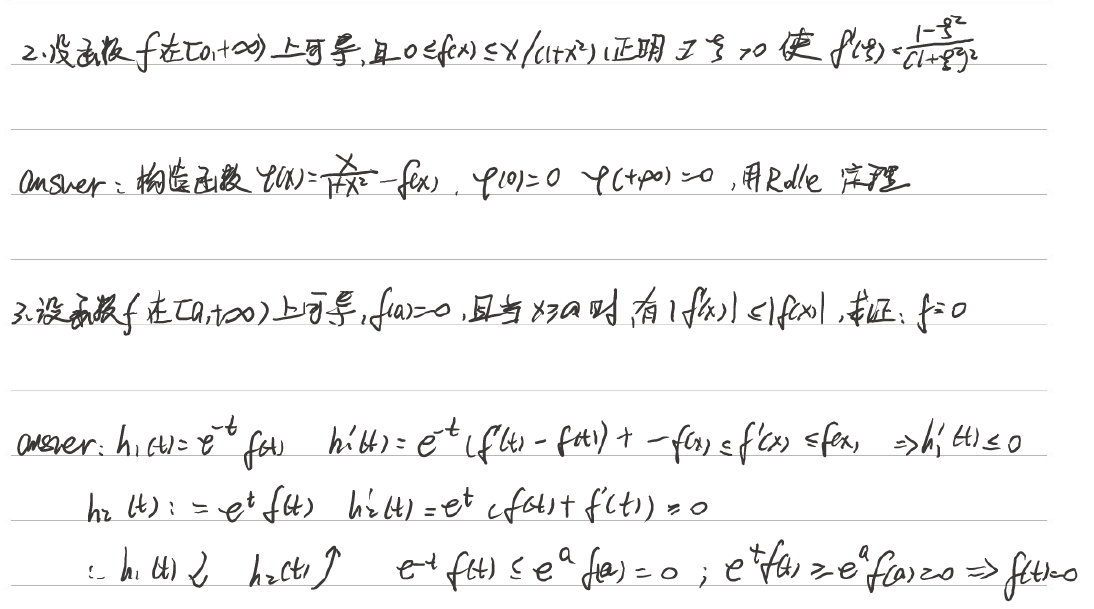 2.设函数 f 在[0,+∞) 上可导,且 0≤f(x)≤x/(1+x²),证明 ∃ ξ >0 使 f'(ξ)=\frac{1-ξ²}{(1+ξ²)²}
answer：构造函数 φ(x)=\frac{x}{1+x²}-f(x) , φ(0)=0 φ(+∞)=0 ,用Rolle 定理
3.设函数 f 在[a,+∞) 上可导,f(a)=0 ,且当 x≥a 时 ,有 |f'(x)| ≤|f(x)| ,求证: f=0
answer: h₁(t)=e^{-t} f(t) h₁'(t)=e^{-t}(f'(t)-f(t)) + -f(x)≤f'(x)≤f(x) ⇒h₁'(t)≤0
h₂(t):=e^t f(t) h₂'(t)=e^t (f(t)+f'(t))≥0
∴ h₁(t)↓ h₂(t)↑ e^{-t} f(t)≤e^a f(a)=0 ; e^t f(t)≥e^a f(a)=0 ⇒ f(t)=0